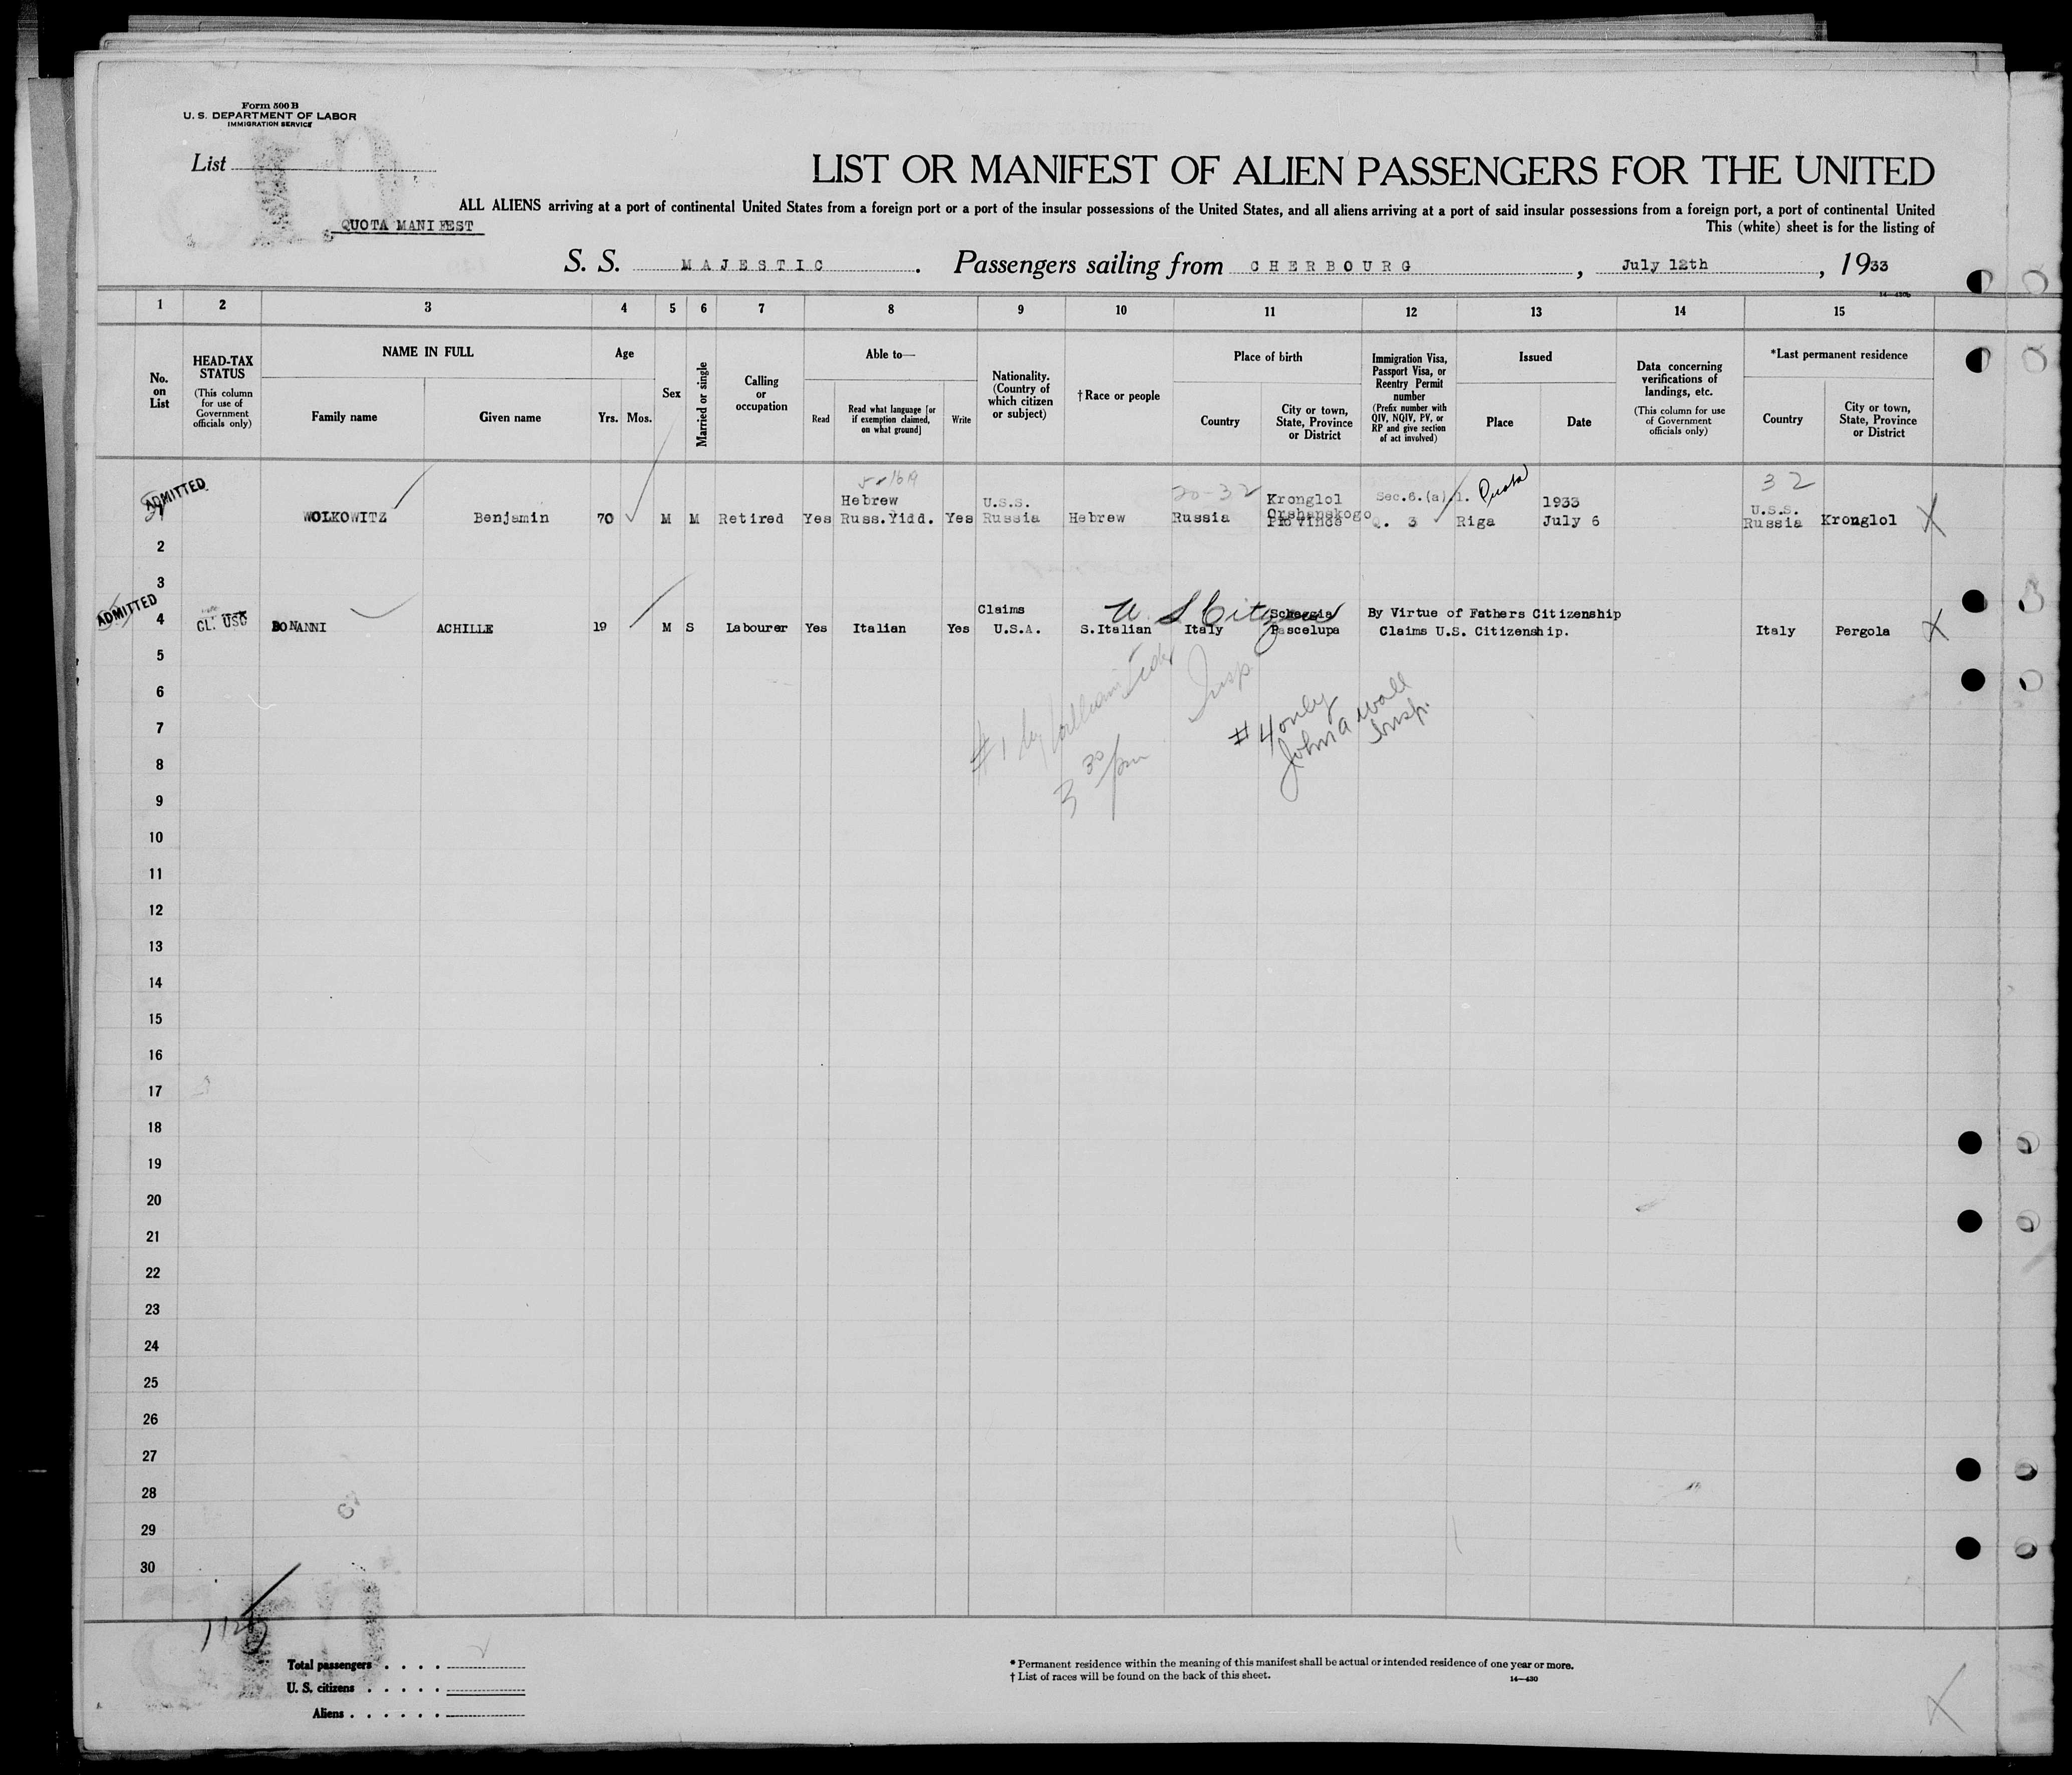 Form 500 B
U. S. DEPARTMENT OF LABOR
IMMIGRATION SERVICE
List
LIST OR MANIFEST OF ALIEN PASSENGERS FOR THE UNITED
ALL ALIENS arriving at a port of continental United States from a foreign port or a port of the insular possessions of the United States, and all aliens arriving at a port of said insular possessions from a foreign port, a port of continental United
QUOTA MANIFEST
This (white) sheet is for the listing of
S. S. MAJESTIC. Passengers sailing from CHERBOURG, July 12th, 1933
1 2 3 4 5 6 7 8 9 10 11 12 13 14 15
No. on List
HEAD-TAX STATUS
(This column for use of Government officials only)
NAME IN FULL
Family name
Given name
Age
Yrs. Mos.
Sex
Married or single
Calling or occupation
Able to—
Read
Read what language [or if exemption claimed, on what ground]
Write
Nationality. (Country of which citizen or subject)
†Race or people
Place of birth
Country
City or town, State, Province or District
Immigration Visa, Passport Visa, or Reentry Permit number
(Prefix number with QIV, NQIV, PV, or RP and give section of act involved)
Issued
Place
Date
Data concerning verifications of landings, etc.
(This column for use of Government officials only)
*Last permanent residence
Country
City or town, State, Province or District
20-32
32
ADMITTED
Hebrew U.S.S. Kronglol Sec.6.(a).1. Quota 1933 U.S.S.
WOLKOWITZ Benjamin 70 M M Retired Yes Russ.Yidd. Yes Russia Hebrew Russia Orshanskogo Province Q. 3 Riga July 6 Russia Kronglol
2
3
ADMITTED
Claims U S Citizen Scheggia By Virtue of Fathers Citizenship
4 CL. USC BONANNI ACHILLE 19 M S Labourer Yes Italian Yes U.S.A. S.Italian Italy Pascelupa Claims U.S. Citizenship. Italy Pergola
5
6
7
8
9
10
11
12
13
14
15
16
17
18
19
20
21
22
23
24
25
26
27
28
29
30
#1 by William
Insp
3 30 pm
#4 only
John A Wall
Insp.
Total passengers
U. S. citizens
Aliens
* Permanent residence within the meaning of this manifest shall be actual or intended residence of one year or more.
† List of races will be found on the back of this sheet.
14—430